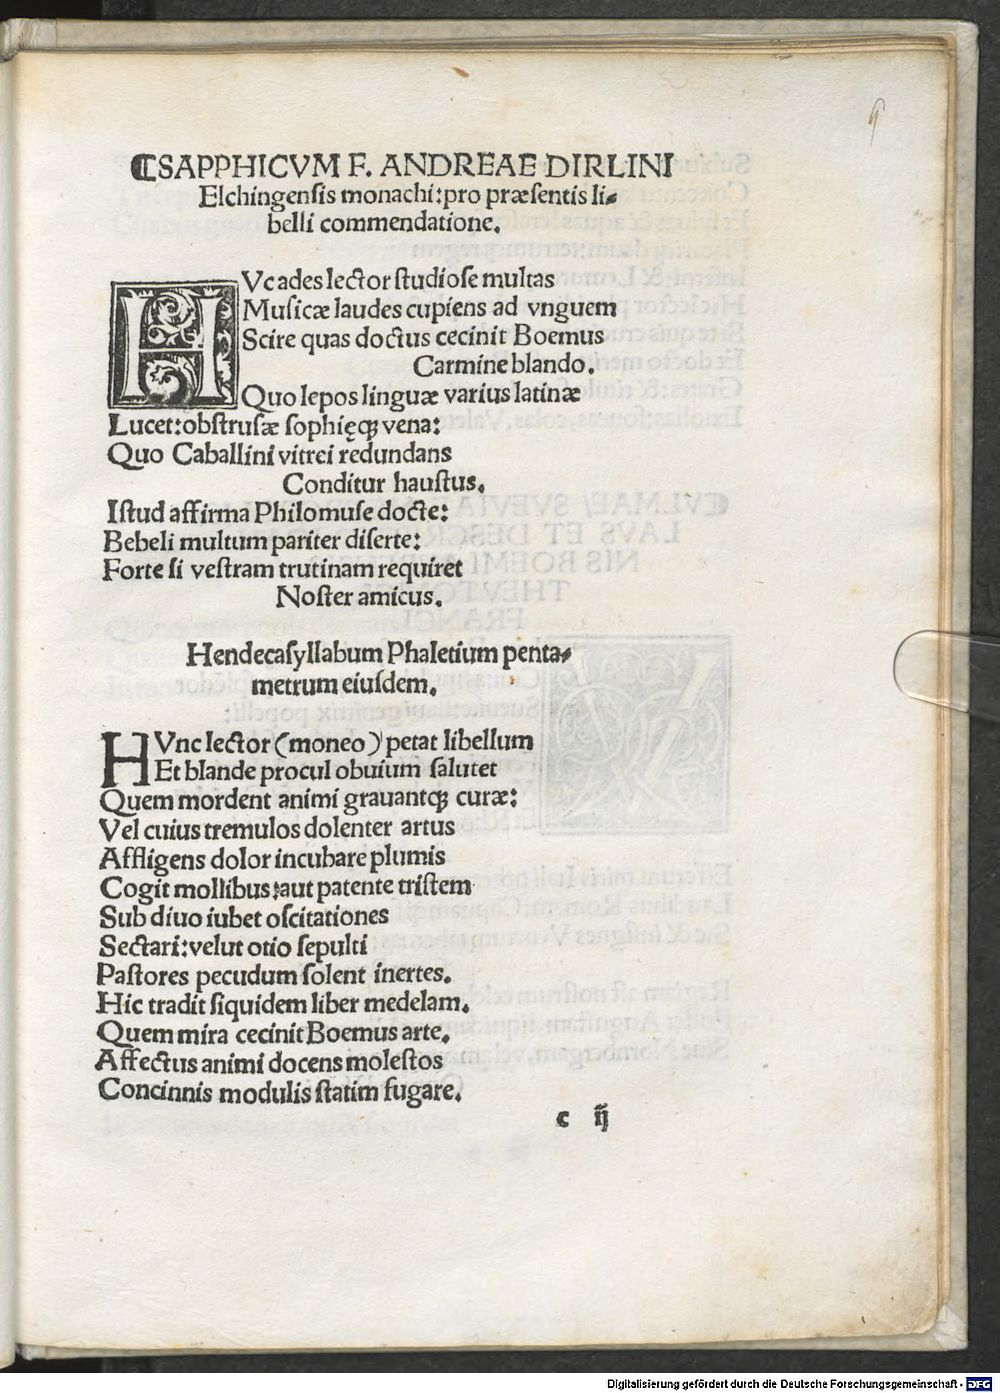 ⸿SAPPHICVM F. ANDREAE DIRLINI
Elchingenſis monachi:pro præſentis li⸗
belli commendatione.
HVc ades lector ſtudioſe multas
Muſicæ laudes cupiens ad vnguem
Scire quas doctus cecinit Boemus
Carmine blando.
Quo lepos linguæ varius latinæ
Lucet:obſtruſæ ſophięq; vena:
Quo Caballini vitrei redundans
Conditur hauſtus.
Iſtud affirma Philomuſe docte:
Bebeli multum pariter diſerte:
Forte ſi veſtram trutinam requiret
Noſter amicus.
Hendecaſyllabum Phaletium penta⸗
metrum eiuſdem.
HVnc lector (moneo) petat libellum
Et blande procul obuium ſalutet
Quem mordent animi grauantq; curæ:
Vel cuius tremulos dolenter artus
Affligens dolor incubare plumis
Cogit mollibus:aut patente triſtem
Sub diuo iubet oſcitationes
Sectari:velut otio ſepulti
Paſtores pecudum ſolent inertes.
Hic tradit ſiquidem liber medelam.
Quem mira cecinit Boemus arte.
Affectus animi docens moleſtos
Concinnis modulis ſtatim fugare.
c ij
Digitalisierung gefördert durch die Deutsche Forschungsgemeinschaft - DFG